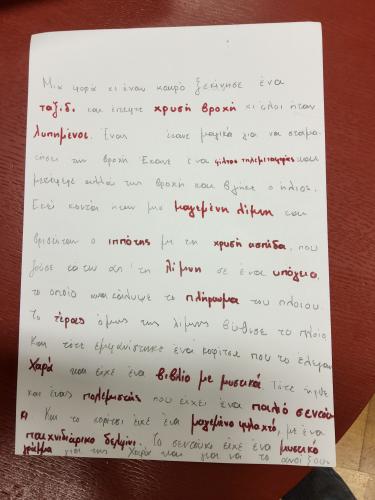 Μια φορα κι έναν καιρό ξεκίνησε ένα
ταξίδι και έπεφτε χρυσή βροχή κι όλοι ήταν
λυπημένοι. Ένας έκανε μαγικά για να σταμα-
τήσει την βροχή. Έκανε ένα φίλτρο τηλεμεταφοράς και
μετέφερε αλλού την βροχή και βγήκε ο ήλιος.
Εκεί κοντά ήταν μια μαγεμένη λίμνη και
βρισκόταν ο ιππότης με τη χρυσή ασπίδα, που
ζούσε κάτω απ' τη λίμνη σε ένα υπόγειο,
το οποίο ανακάλυψε το πλήρωμα του πλοίου.
Το τέρας όμως της λίμνης βύθισε το πλοίο
Και τότε εμφανίστηκε ένα κορίτσι που το έλεγαν
Χαρά και είχε ένα βιβλίο με μυστικά. Τότε ήρθε
και ένας πολεμιστής που είχε ένα παλιό σεντούκι
Και το κορίτσι είχε ένα μαγεμένο φυλαχτό, με ένα
παιχνιδιάρικο δελφίνι. Το σεντούκι είχε ένα μυστικό
γράμμα για της Χαρά και για να το ανοίξουν